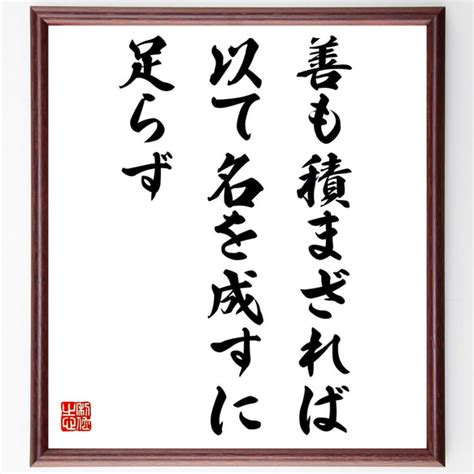 善も積まざれば
以て名を成すに
足らず